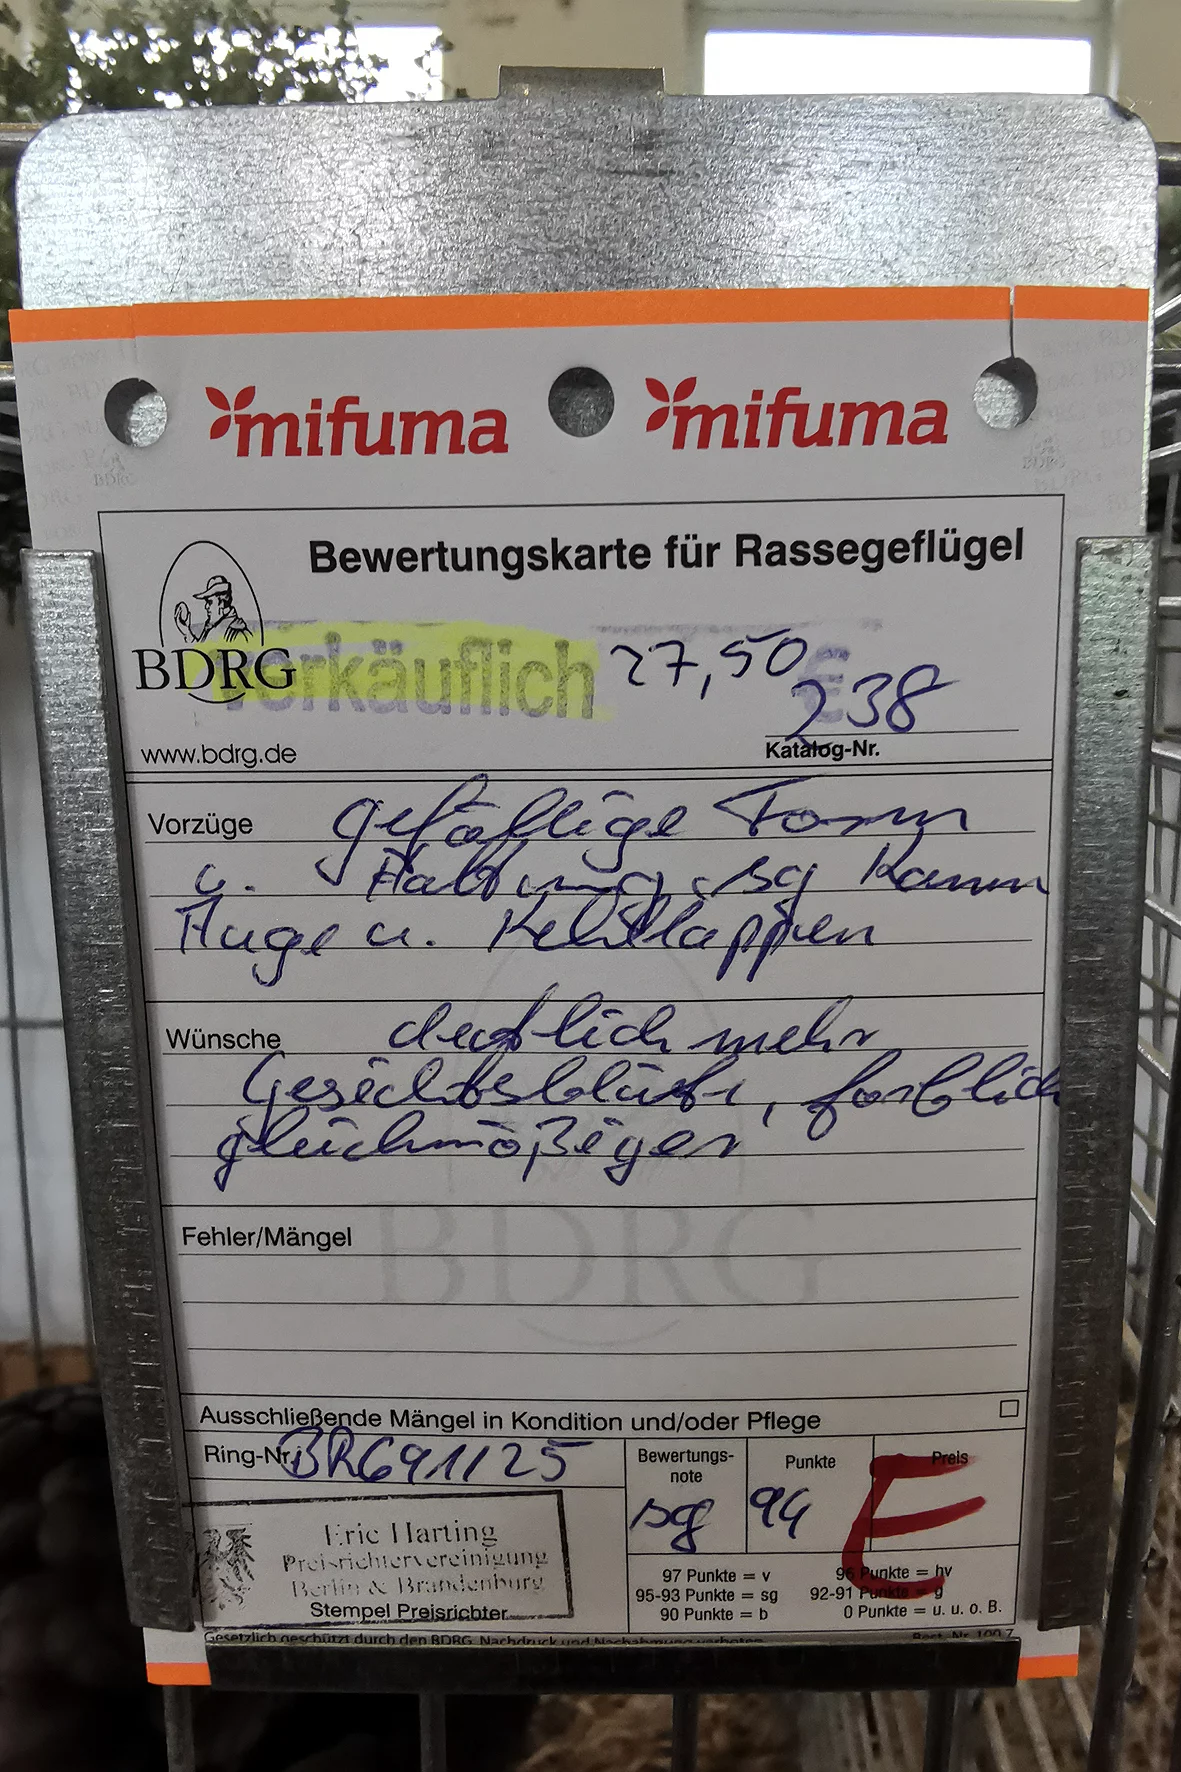 mifuma mifuma
Bewertungskarte für Rassegeflügel
BDRG
verkäuflich 27,50 €
238
www.bdrg.de
Katalog-Nr.
Vorzüge gefällige Form
u. Haltung, sg Kamm
Auge u. Kehllappen
Wünsche deutlich mehr
Gesichtsblüte, farblich
gleichmäßiger
BDRG
Fehler/Mängel
Ausschließende Mängel in Kondition und/oder Pflege
Ring-Nr.: BR691/25
Bewertungs-
note
sg
Punkte
94
Preis
E
Eric Harting
Preisrichtervereinigung
Berlin & Brandenburg
Stempel Preisrichter
97 Punkte = v 96 Punkte = hv
95-93 Punkte = sg 92-91 Punkte = g
90 Punkte = b 0 Punkte = u. u. o. B.
Gesetzlich geschützt durch den BDRG. Nachdruck und Nachahmung verboten. Best.-Nr. 100 7